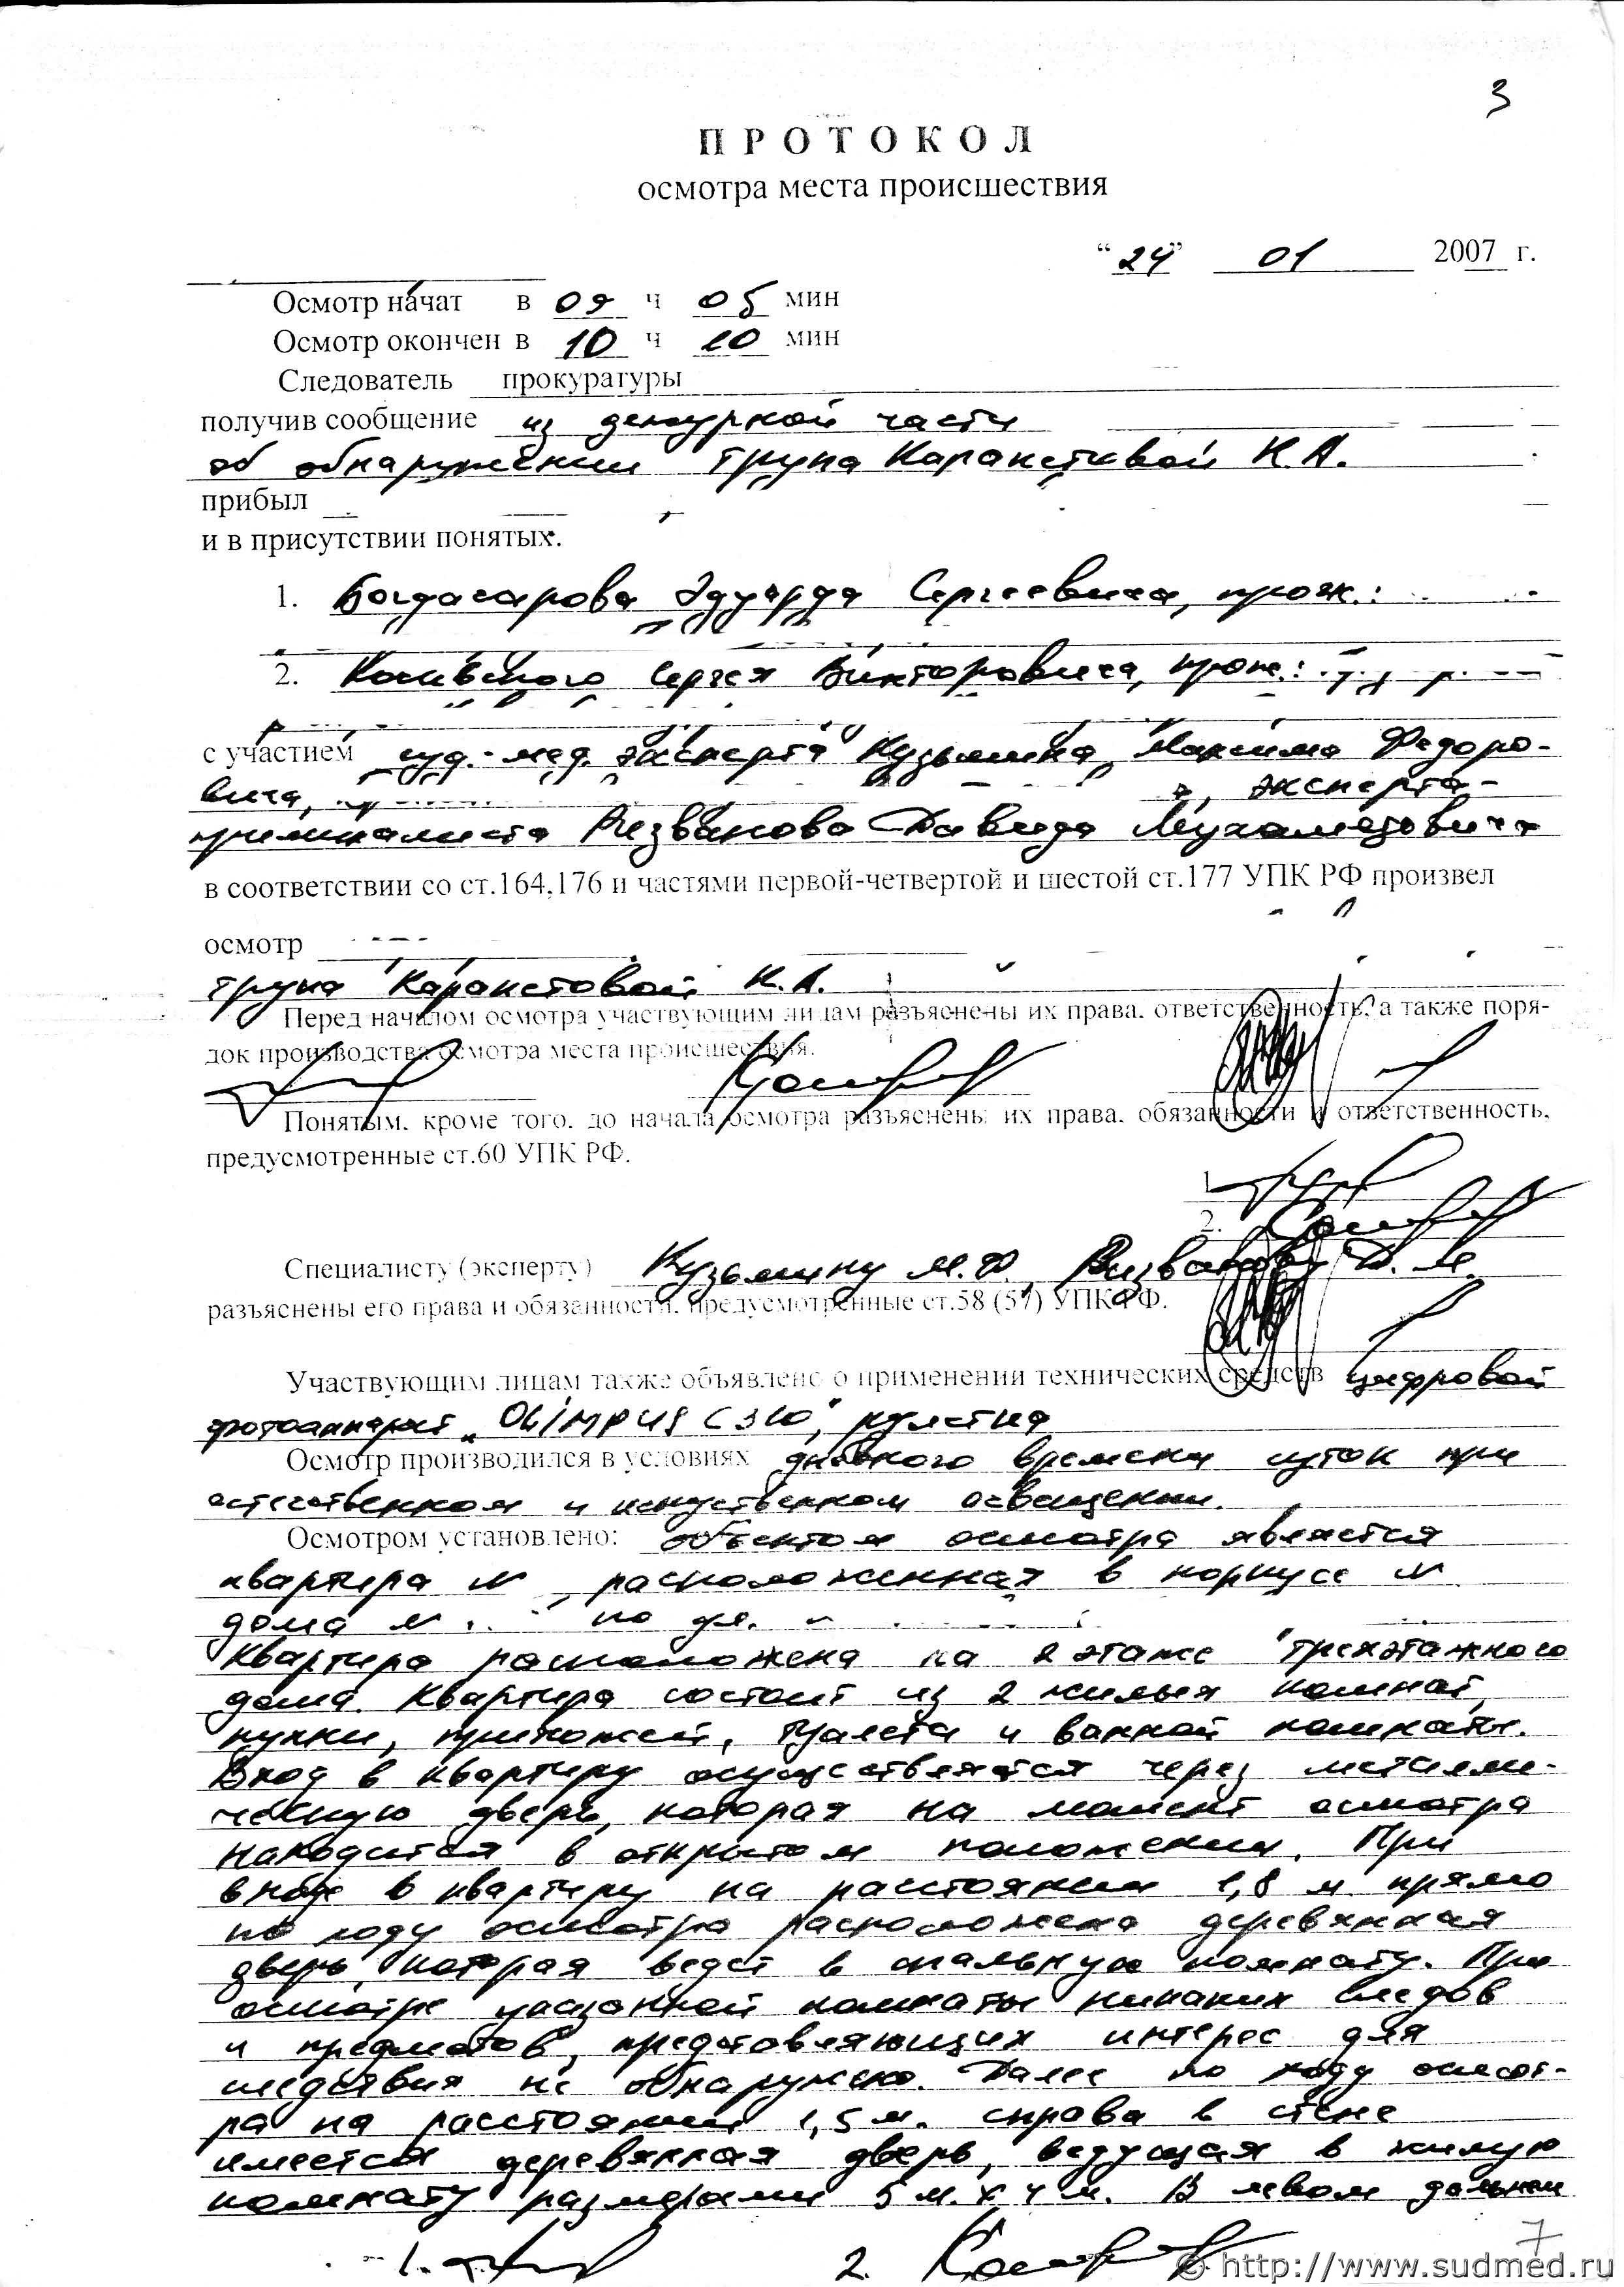 3
ПРОТОКОЛ
осмотра места происшествия
"24" 01 2007 г.
Осмотр начат в 09 ч 05 мин
Осмотр окончен в 10 ч 20 мин
Следователь прокуратуры
получив сообщение из дежурной части
об обнаружении трупа К.А.
прибыл
и в присутствии понятых.
1. Богдасарова Эдуарда Сергеевича, прож.:
2. Сергея Викторовича, прож.:
с участием суд.-мед. эксперта Кузьмина Максима Федоро-
вича, эксперта-
криминалиста Ризванова Давида Мухаметовича
в соответствии со ст.164,176 и частями первой-четвертой и шестой ст.177 УПК РФ произвел
осмотр
трупа К.А.
Перед началом осмотра участвующим лицам разъяснены их права, ответственность, а также поря-
док производства осмотра места происшествия.
Понятым, кроме того, до начала осмотра разъяснены их права, обязанности и ответственность,
предусмотренные ст.60 УПК РФ.
1
2.
Специалисту (эксперту) Кузьмину М.Ф., Ризванову Д.М.
разъяснены его права и обязанности, предусмотренные ст.58 (57) УПК РФ.
Участвующим лицам также объявлено о применении технических средств цифровой
фотоаппарат „Olimpus C310", рулетка
Осмотр производился в условиях дневного времени суток при
естественном и искуственном освещении.
Осмотром установлено: объектом осмотра является
квартира №, расположенная в корпусе №
дома № по ул.
Квартира расположена на 2 этаже трехэтажного
дома. Квартира состоит из 2 жилых комнат,
кухни, прихожей, туалета и ванной комнаты.
Вход в квартиру осуществляется через металли-
ческую дверь, которая на момент осмотра
находится в открытом положении. При
входе в квартиру на расстоянии 1,8 м прямо
по ходу осмотра расположена деревянная
дверь, которая ведет в спальную комнату. При
осмотре указанной комнаты никаких следов
и предметов, представляющих интерес для
следствия не обнаружено. Далее по ходу осмот-
ра на расстоянии 1,5 м. справа в стене
имеется деревянная дверь, ведущая в жилую
комнату размерами 5 м. х 4 м. В левом дальнем
1. 2.
7
© http://www.sudmed.ru